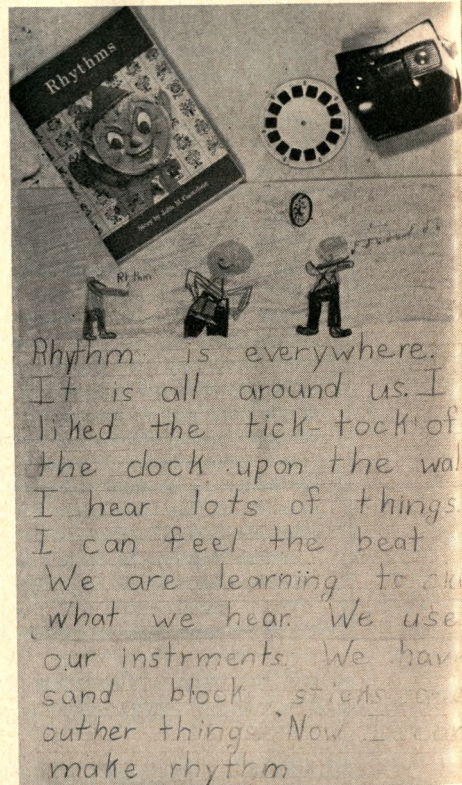 Rhythms
Story by John M.
Rhythm
Rhythm is everywhere.
It is all around us. I
liked the tick-tock of
the clock upon the wal
I hear lots of things.
I can feel the beat
We are learning to
what we hear. We use
our instrments We hav
sand block sticks
outher things Now I can
make rhythm